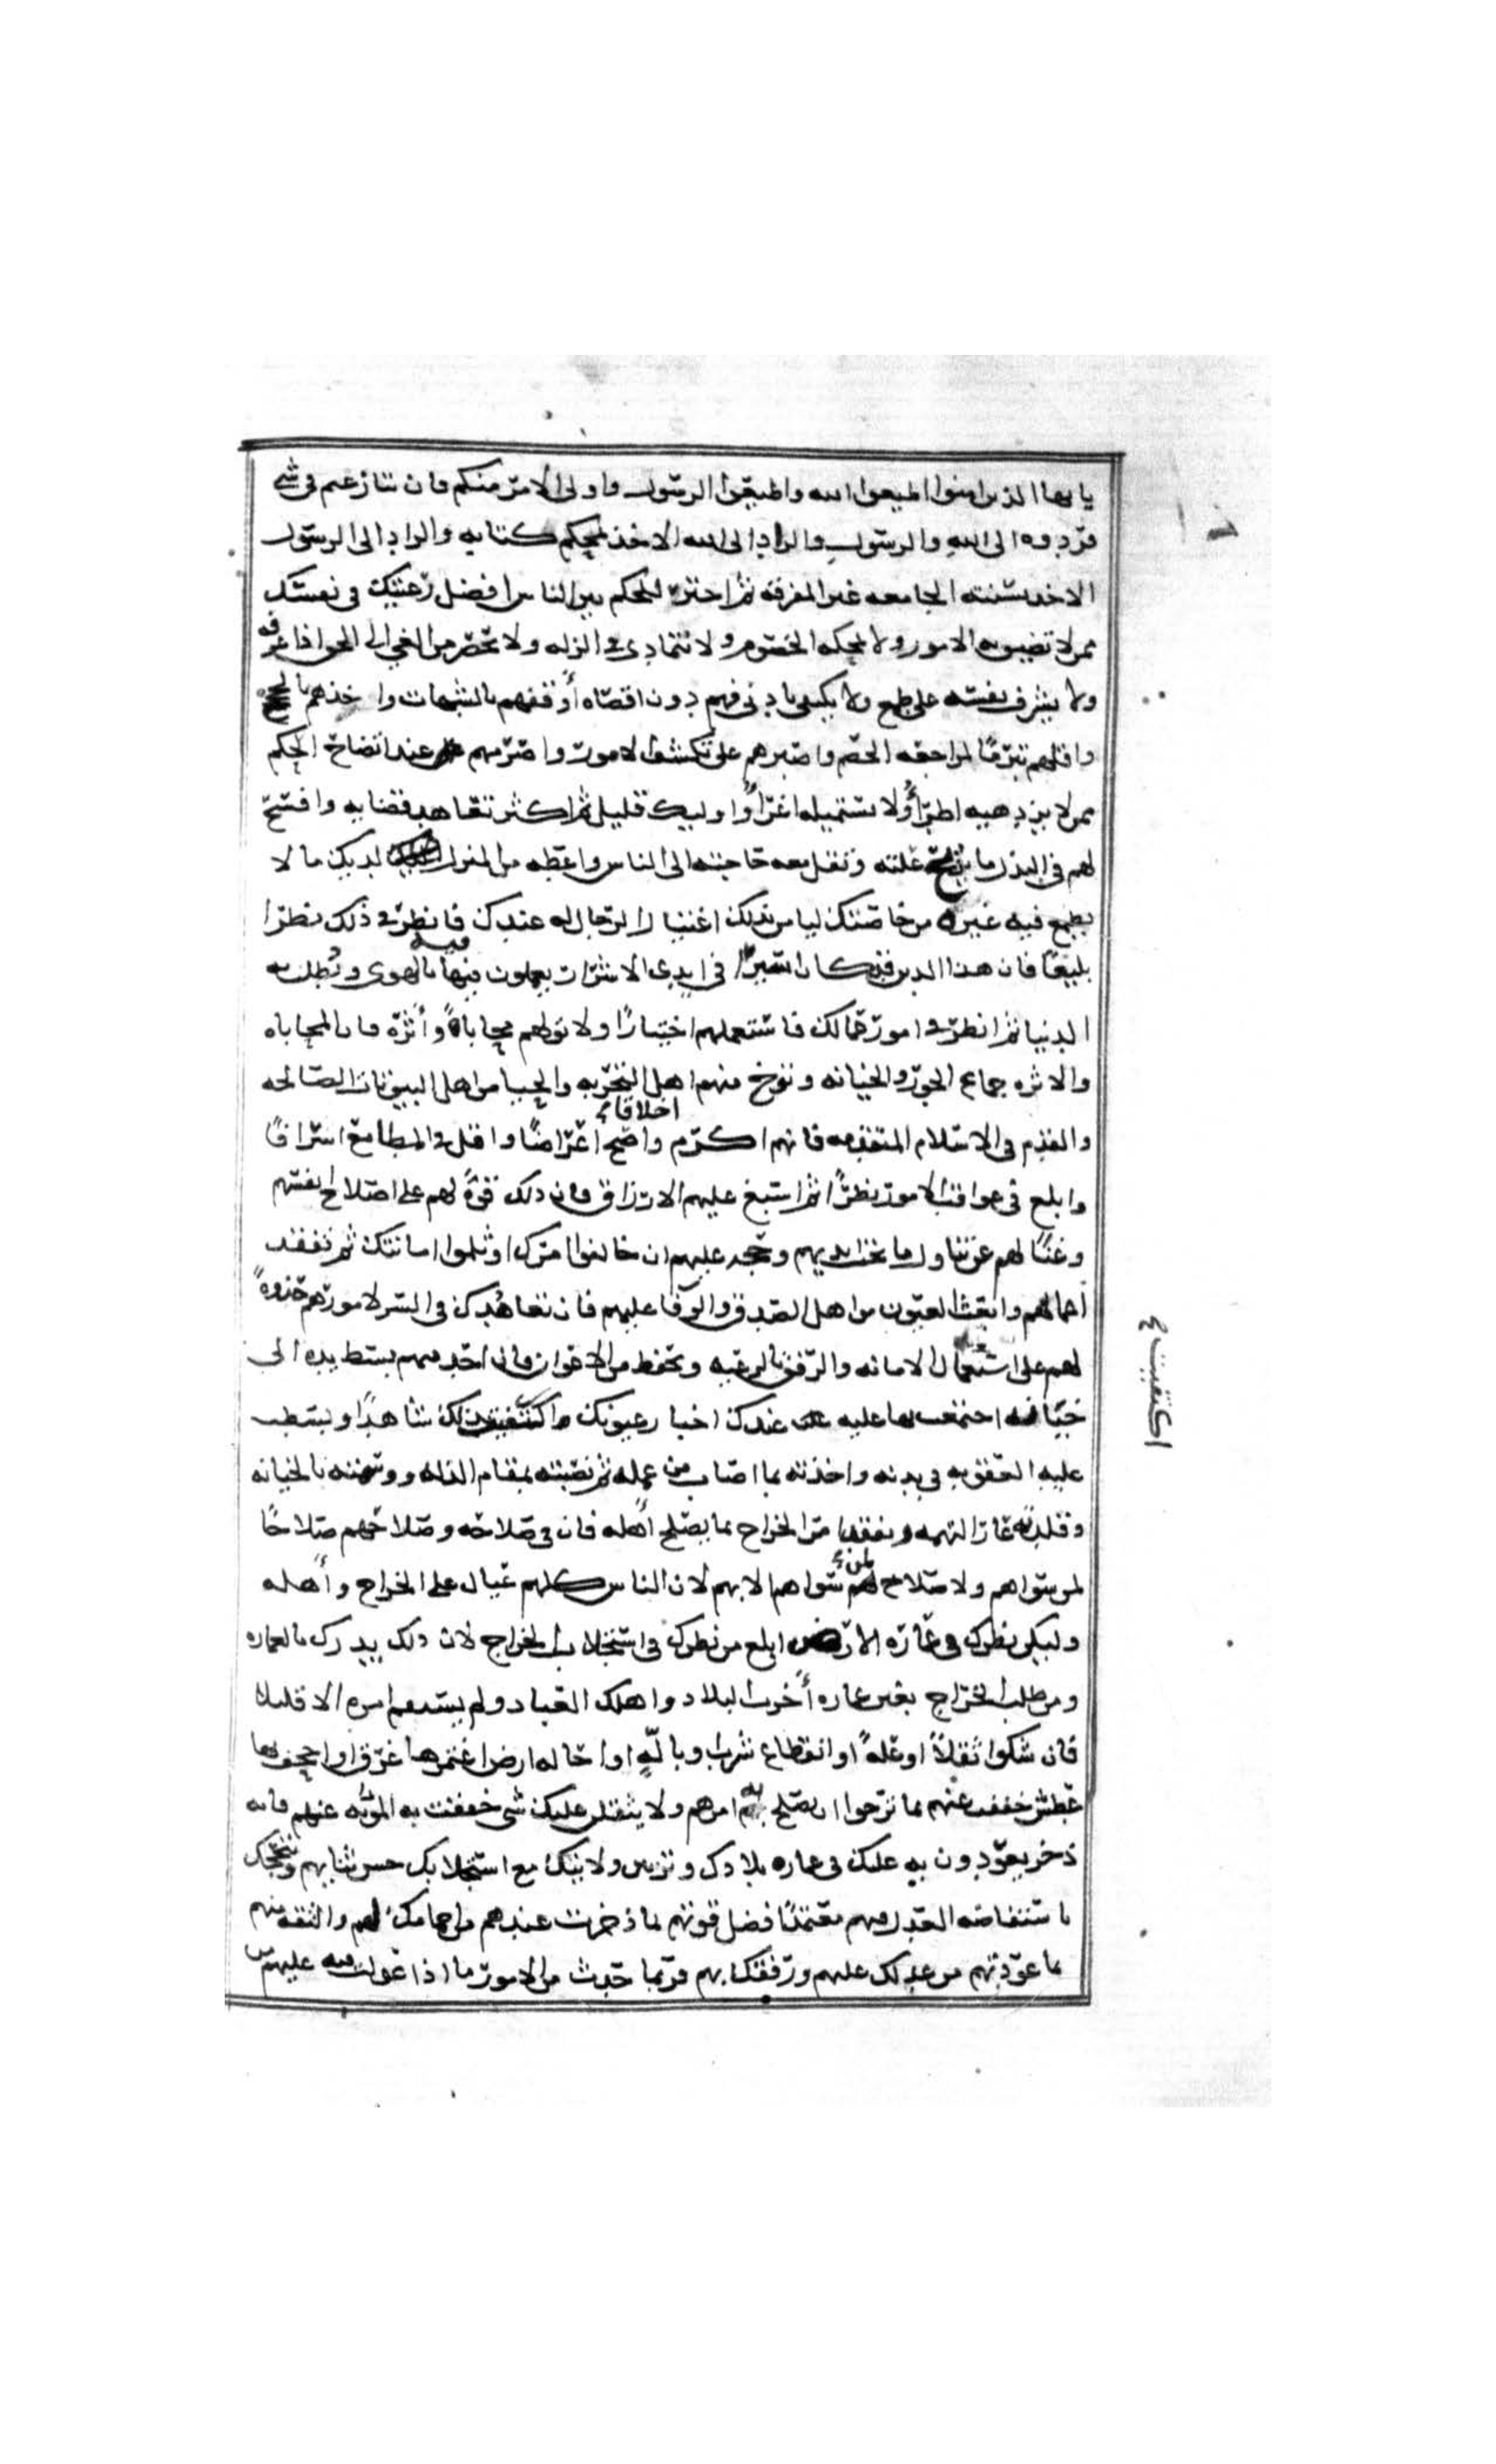 يايها الذين امنوا اطيعوا الله واطيعوا الرسول واولى الامر منكم فان تنازعتم فى شى
فردوه الى الله والرسول والراد الى الله الاخذ بمحكم كتابه والراد الى الرسول
الاخذ بسنته الجامعه غير المفرقه ثم اختر للحكم بين الناس افضل رعيتك فى نفسك
ممن لا تضيق به الامور ولا تمحكه الخصوم ولا يتمادى فى الزله ولا يحصر من الفى الى الحق اذا عرفه
ولا يشرف نفسه على طمع ولا يكتفى بادنى فهم دون اقصاه أوقفهم بالشبهات واخذهم بالحجج
واقلهم تبرمًا لمراجعه الخصم واصبرهم على تكشف الامور واصرمهم عند اتضاح الحكم
ممن لا يزدهيه اطراءٌ ولا يستميله اغراءٌ واوليك قليل ثم اكثر تعاهد قضايه وافسح
لهم فى البذل ما يزيح علته وتقل معه حاجته الى الناس واعطه من المنزله لديك ما لا
يطمع فيه غيره من خاصتك ليامن بذلك اغتيال الرجال له عندك فانظر فى ذلك نظرا
بليغًا فان هذا الدين قد كان اسيرًا فى ايدى الاشرار يعملون فيه بالهوى وتطلب به
الدنيا ثم انظر فى امور عمالك فاستعملهم اختبارًا ولا تولهم محاباةً وأثره فان المحاباه
والاثره جماع الجور والخيانه وتوخ منهم اهل التجربه والحيا من اهل البيوتات الصالحه
والقدم فى الاسلام المتقدمه فانهم اكرم اخلاقا واصح أغراضًا واقل فى المطامع اسرافًا
وابلغ فى عواقب الامور نظرًا ثم اسبغ عليهم الارزاق فان ذلك قوةً لهم على اصلاح انفسهم
وغنًا لهم عن تناول ما تحت ايديهم وحجه عليهم ان خالفوا امرك او ثلموا امانتك ثم تفقد
أعمالهم وابعث العيون من اهل الصدق والوفا عليهم فان تعاهدك فى السر لامورهم حدوةً
لهم على استعمال الامانه والرفق بالرعيه وتحفظ من الاعوان فان احد منهم بسط يده الى
خيانه اجتمعت بها عليه عندك اخبار عيونك اكتفيت بذلك شاهدًا وبسطت
عليه العقوبه فى بدنه واخذته بما اصاب من عمله ثم نصبته بمقام الذله ووسمته بالخيانه
وقلدته عار التهمه وتفقد امر الخراج بما يصلح أهله فان فى صلاحه وصلاحهم صلاحًا
لمن سواهم ولا صلاح لمن سواهم الا بهم لان الناس كلهم عيال على الخراج وأهله
وليكن نظرك فى عمارة الارض ابلغ من نظرك فى استجلاب الخراج لان ذلك لا يدرك الا بالعماره
ومن طلب الخراج بغير عماره أخرب البلاد واهلك العباد ولم يستقم امره الا قليلا
فان شكوا ثقلاً او علةً او انقطاع شرب وبالةٍ او احاله ارض اغتمرها غرق او اجحف بها
عطش خففت عنهم بما ترجوا ان يصلح به امرهم ولا يثقلن عليك شى خففت به المؤنه عنهم فانه
ذخر يعودون به عليك فى عماره بلادك وتزيين ولايتك مع استجلابك حسن ثنايهم وتبجحك
باستفاضه العدل فيهم معتمدًا فضل قوتهم بما ذخرت عندهم من اجمامك لهم والثقه منهم
بما عودتهم من عدلك عليهم ورفقك بهم فربما حدث من الامور ما اذا عولت فيه عليهم من
اكتفيت